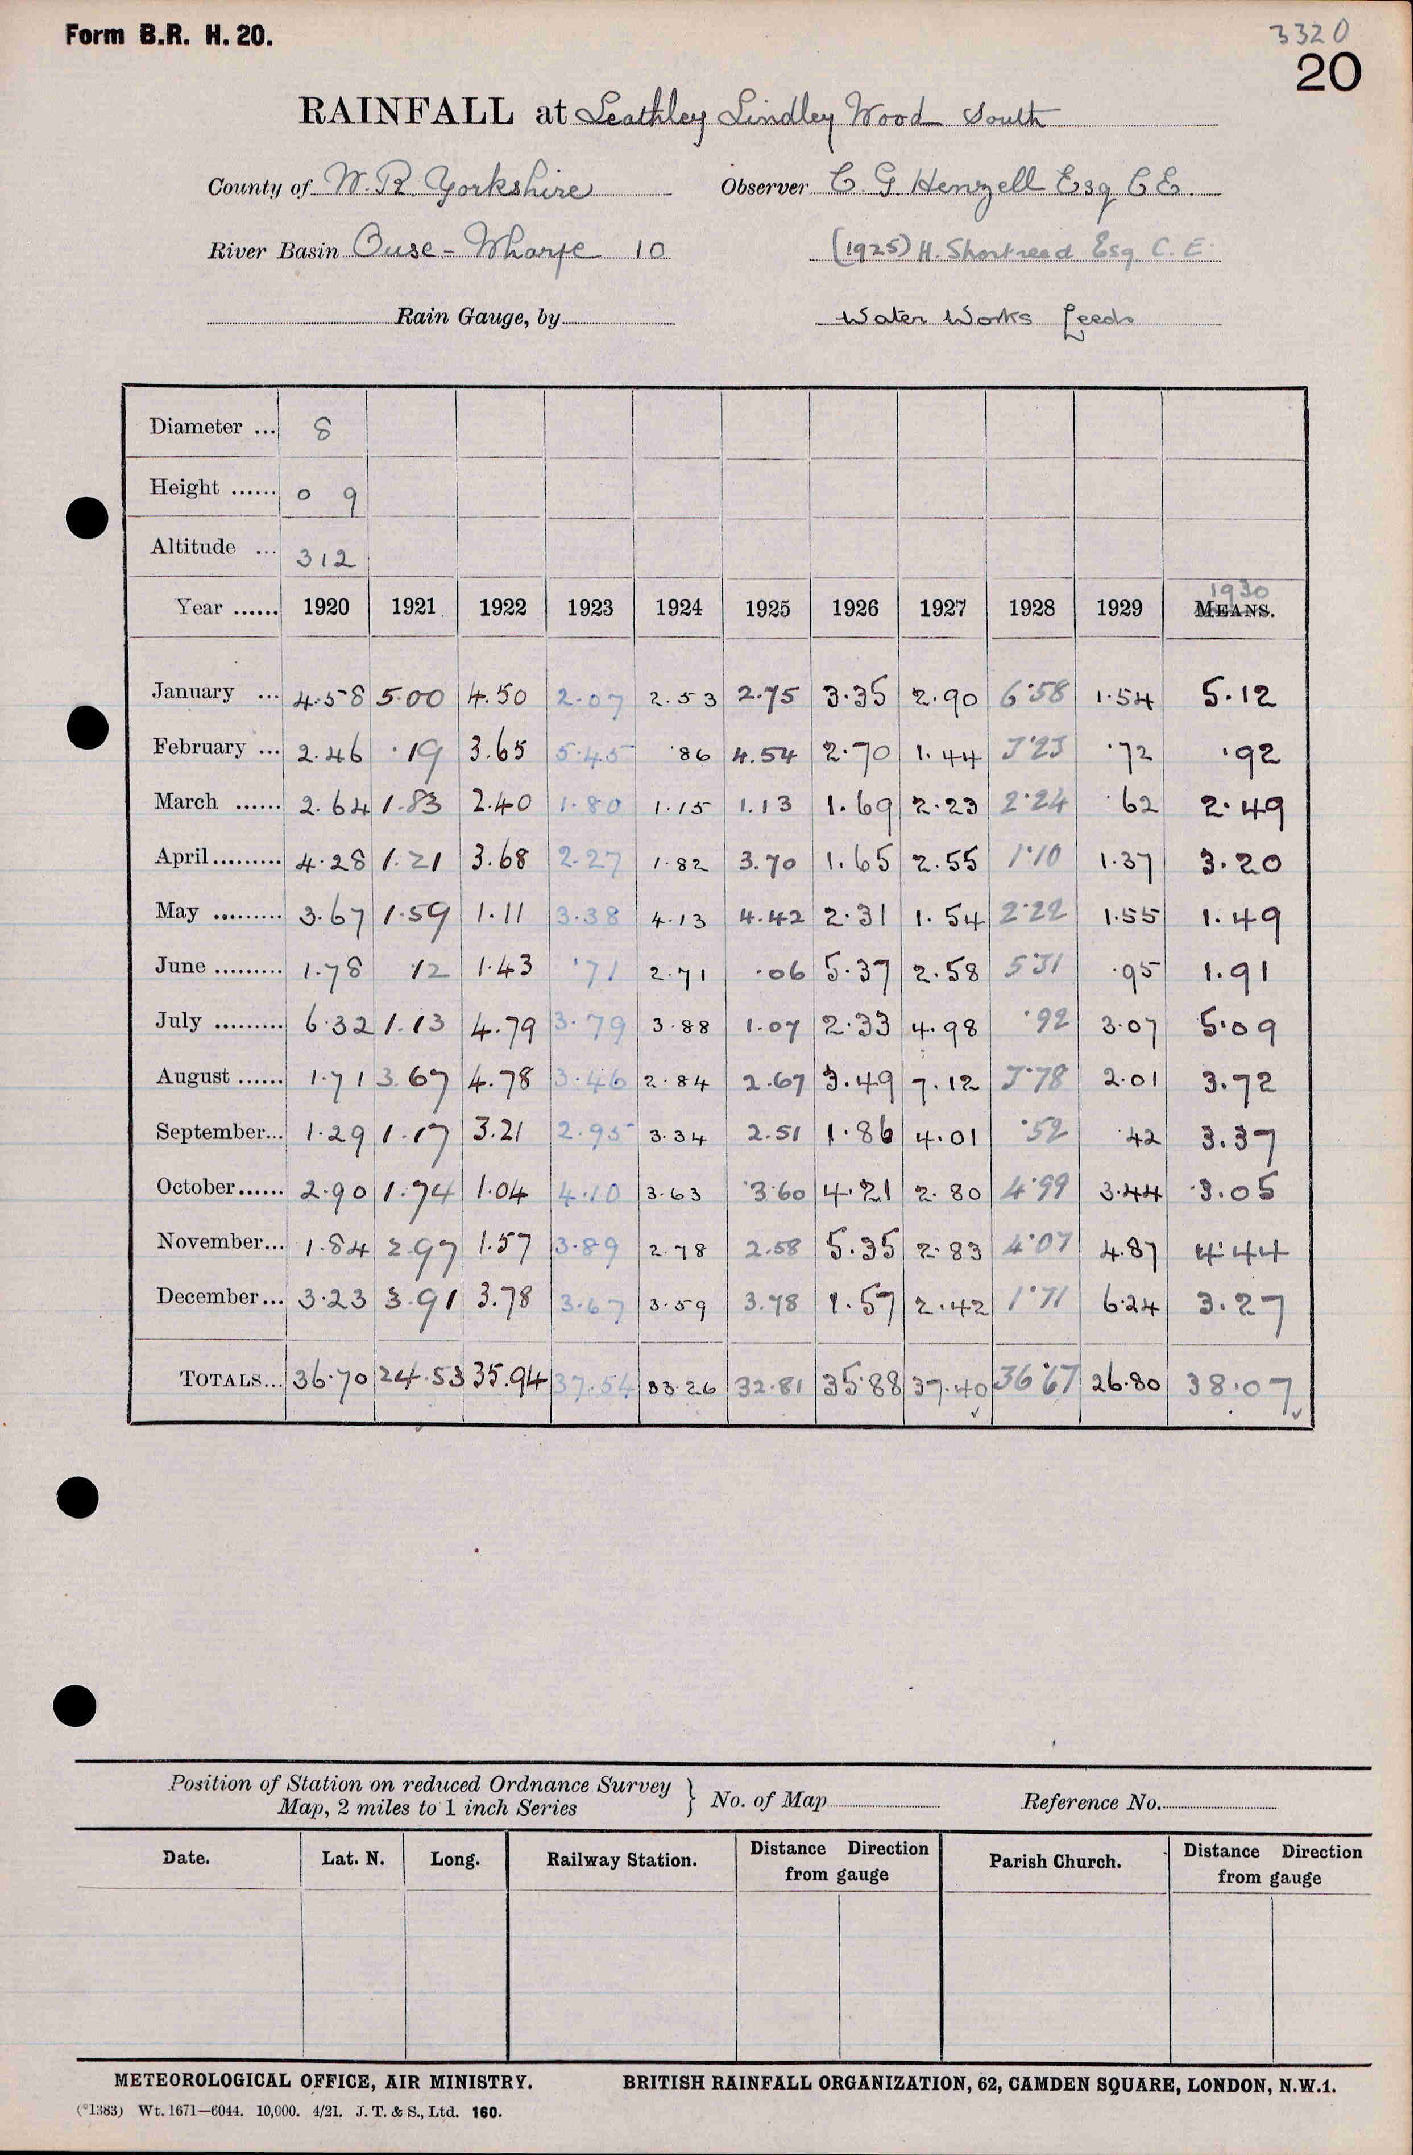 Form B.R. H. 20.
3320
20
RAINFALL at Leathley Lindley Wood South
County of W. R. Yorkshire Observer C. G. Henzell Esq C.E.
River Basin Ouse - Wharfe 10 (1925) H. Shortreed Esq. C. E.
Rain Gauge, by Water Works Leeds
Diameter ... 8
Height ...... 0 9
Altitude ... 312
1930
Year ...... 1920 1921 1922 1923 1924 1925 1926 1927 1928 1929 MEANS.
January ... 4.58 5.00 4.50 2.07 2.53 2.75 3.35 2.90 6.58 1.54 5.12
February ... 2.46 .19 3.65 5.45 .86 4.54 2.70 1.44 3.23 .72 .92
March ...... 2.64 1.83 2.40 1.80 1.15 1.13 1.69 2.23 2.24 .62 2.49
April......... 4.28 1.21 3.68 2.27 1.82 3.70 1.65 2.55 1.10 1.37 3.20
May ......... 3.67 1.59 1.11 3.38 4.13 4.42 2.31 1.54 2.22 1.55 1.49
June ......... 1.78 .12 1.43 .71 2.71 .06 5.37 2.58 5.31 .95 1.91
July ......... 6.32 1.13 4.79 3.79 3.88 1.07 2.33 4.98 .92 3.07 5.09
August ...... 1.71 3.67 4.78 3.46 2.84 2.67 3.49 7.12 3.78 2.01 3.72
September... 1.29 1.17 3.21 2.95 3.34 2.51 1.86 4.01 .52 .42 3.37
October...... 2.90 1.74 1.04 4.10 3.63 3.60 4.21 2.80 4.99 3.44 3.05
November... 1.84 2.97 1.57 3.89 2.78 2.58 5.35 2.83 4.07 4.87 4.44
December... 3.23 3.91 3.78 3.67 3.59 3.78 1.57 2.42 1.71 6.24 3.27
TOTALS... 36.70 24.53 35.94 37.54 33.26 32.81 35.88 37.40 36.67 26.80 38.07
Position of Station on reduced Ordnance Survey
Map, 2 miles to 1 inch Series } No. of Map Reference No.
Date. Lat. N. Long. Railway Station. Distance Direction from gauge Parish Church. Distance Direction from gauge
METEOROLOGICAL OFFICE, AIR MINISTRY. BRITISH RAINFALL ORGANIZATION, 62, CAMDEN SQUARE, LONDON, N.W.1.
(*1383) Wt. 1671—6044. 10,000. 4/21. J. T. & S., Ltd. 160.